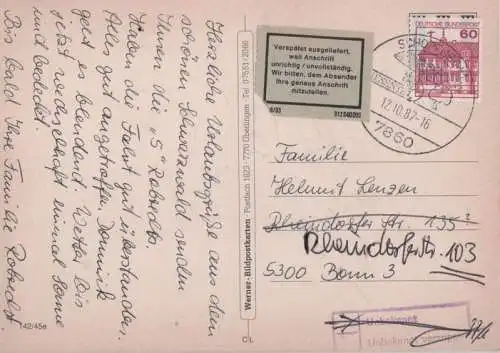 Herzliche Urlaubsgrüße aus dem
schönen Schwarzwald senden
Ihnen die "5" Roberdts
Haben die Fahrt gut überstanden.
Alles gut angetroffen. Dominik
geht es blendend. Wetter bis
jetzt wechselhaft einmal Sonne
und bedeckt.
Bis bald Ihre Familie Roberdst
142/45e
Werner-Bildpostkarten · Postfach 1623 · 7770 Überlingen · Tel. 07551/2060
C L
Verspätet ausgeliefert,
weil Anschrift
unrichtig / unvollständig.
Wir bitten, dem Absender
Ihre genaue Anschrift
mitzuteilen.
912 040 200
DEUTSCHE BUNDESPOST
60
12.10.87-16
7860
Familie
Helmut Lenzen
Rheindorfer Str. 135
Rheindorferstr. 103
5300 Bonn 3
Unbekannt
Unbekannt verzogen